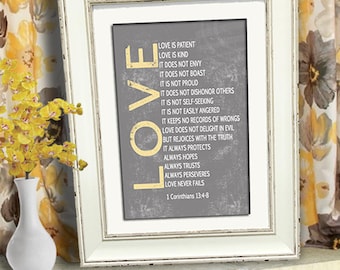 LOVE
LOVE IS PATIENT
LOVE IS KIND
IT DOES NOT ENVY
IT DOES NOT BOAST
IT IS NOT PROUD
IT DOES NOT DISHONOR OTHERS
IT IS NOT SELF-SEEKING
IT IS NOT EASILY ANGERED
IT KEEPS NO RECORDS OF WRONGS
LOVE DOES NOT DELIGHT IN EVIL
BUT REJOICES WITH THE TRUTH
IT ALWAYS PROTECTS
ALWAYS HOPES
ALWAYS TRUSTS
ALWAYS PERSEVERES
LOVE NEVER FAILS
1 Corinthians 13:4-8